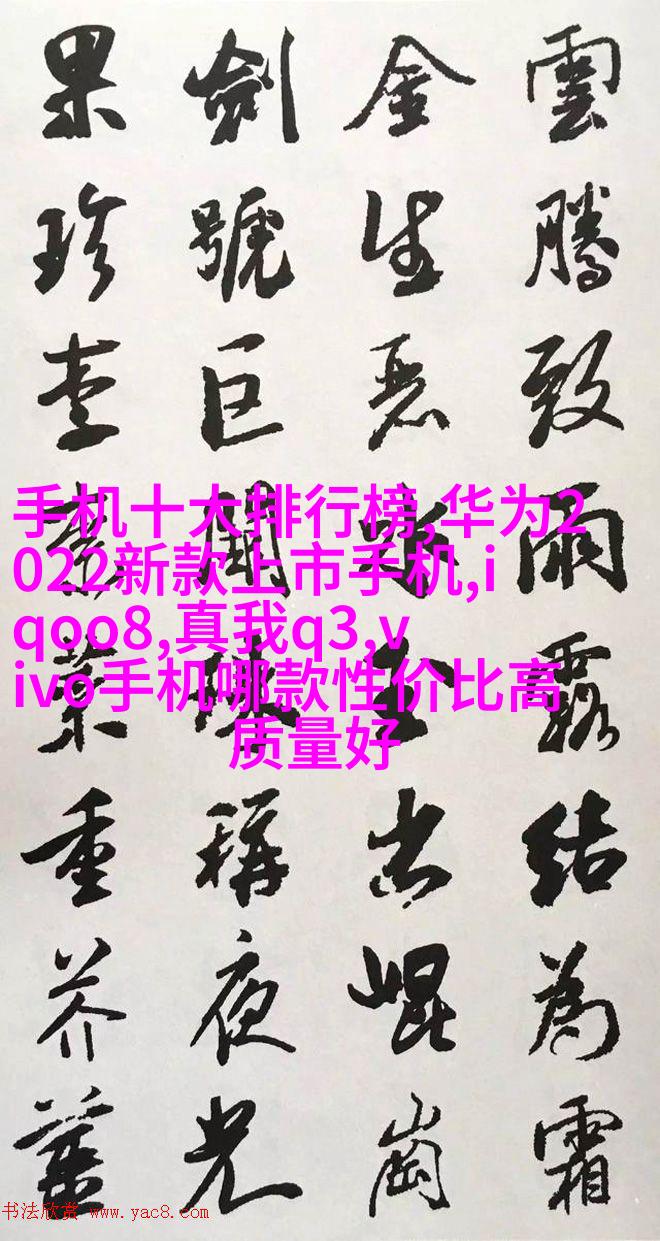 雲騰致雨露結為霜
金生麗玉出崐崗
劍號巨闕珠稱夜光
果珍李菜重芥薑
手机十大排行榜,华为2
022新款上市手机,i
qoo8,真我q3,v
ivo手机哪款性价比高
质量好
书法欣赏 www.yac8.com